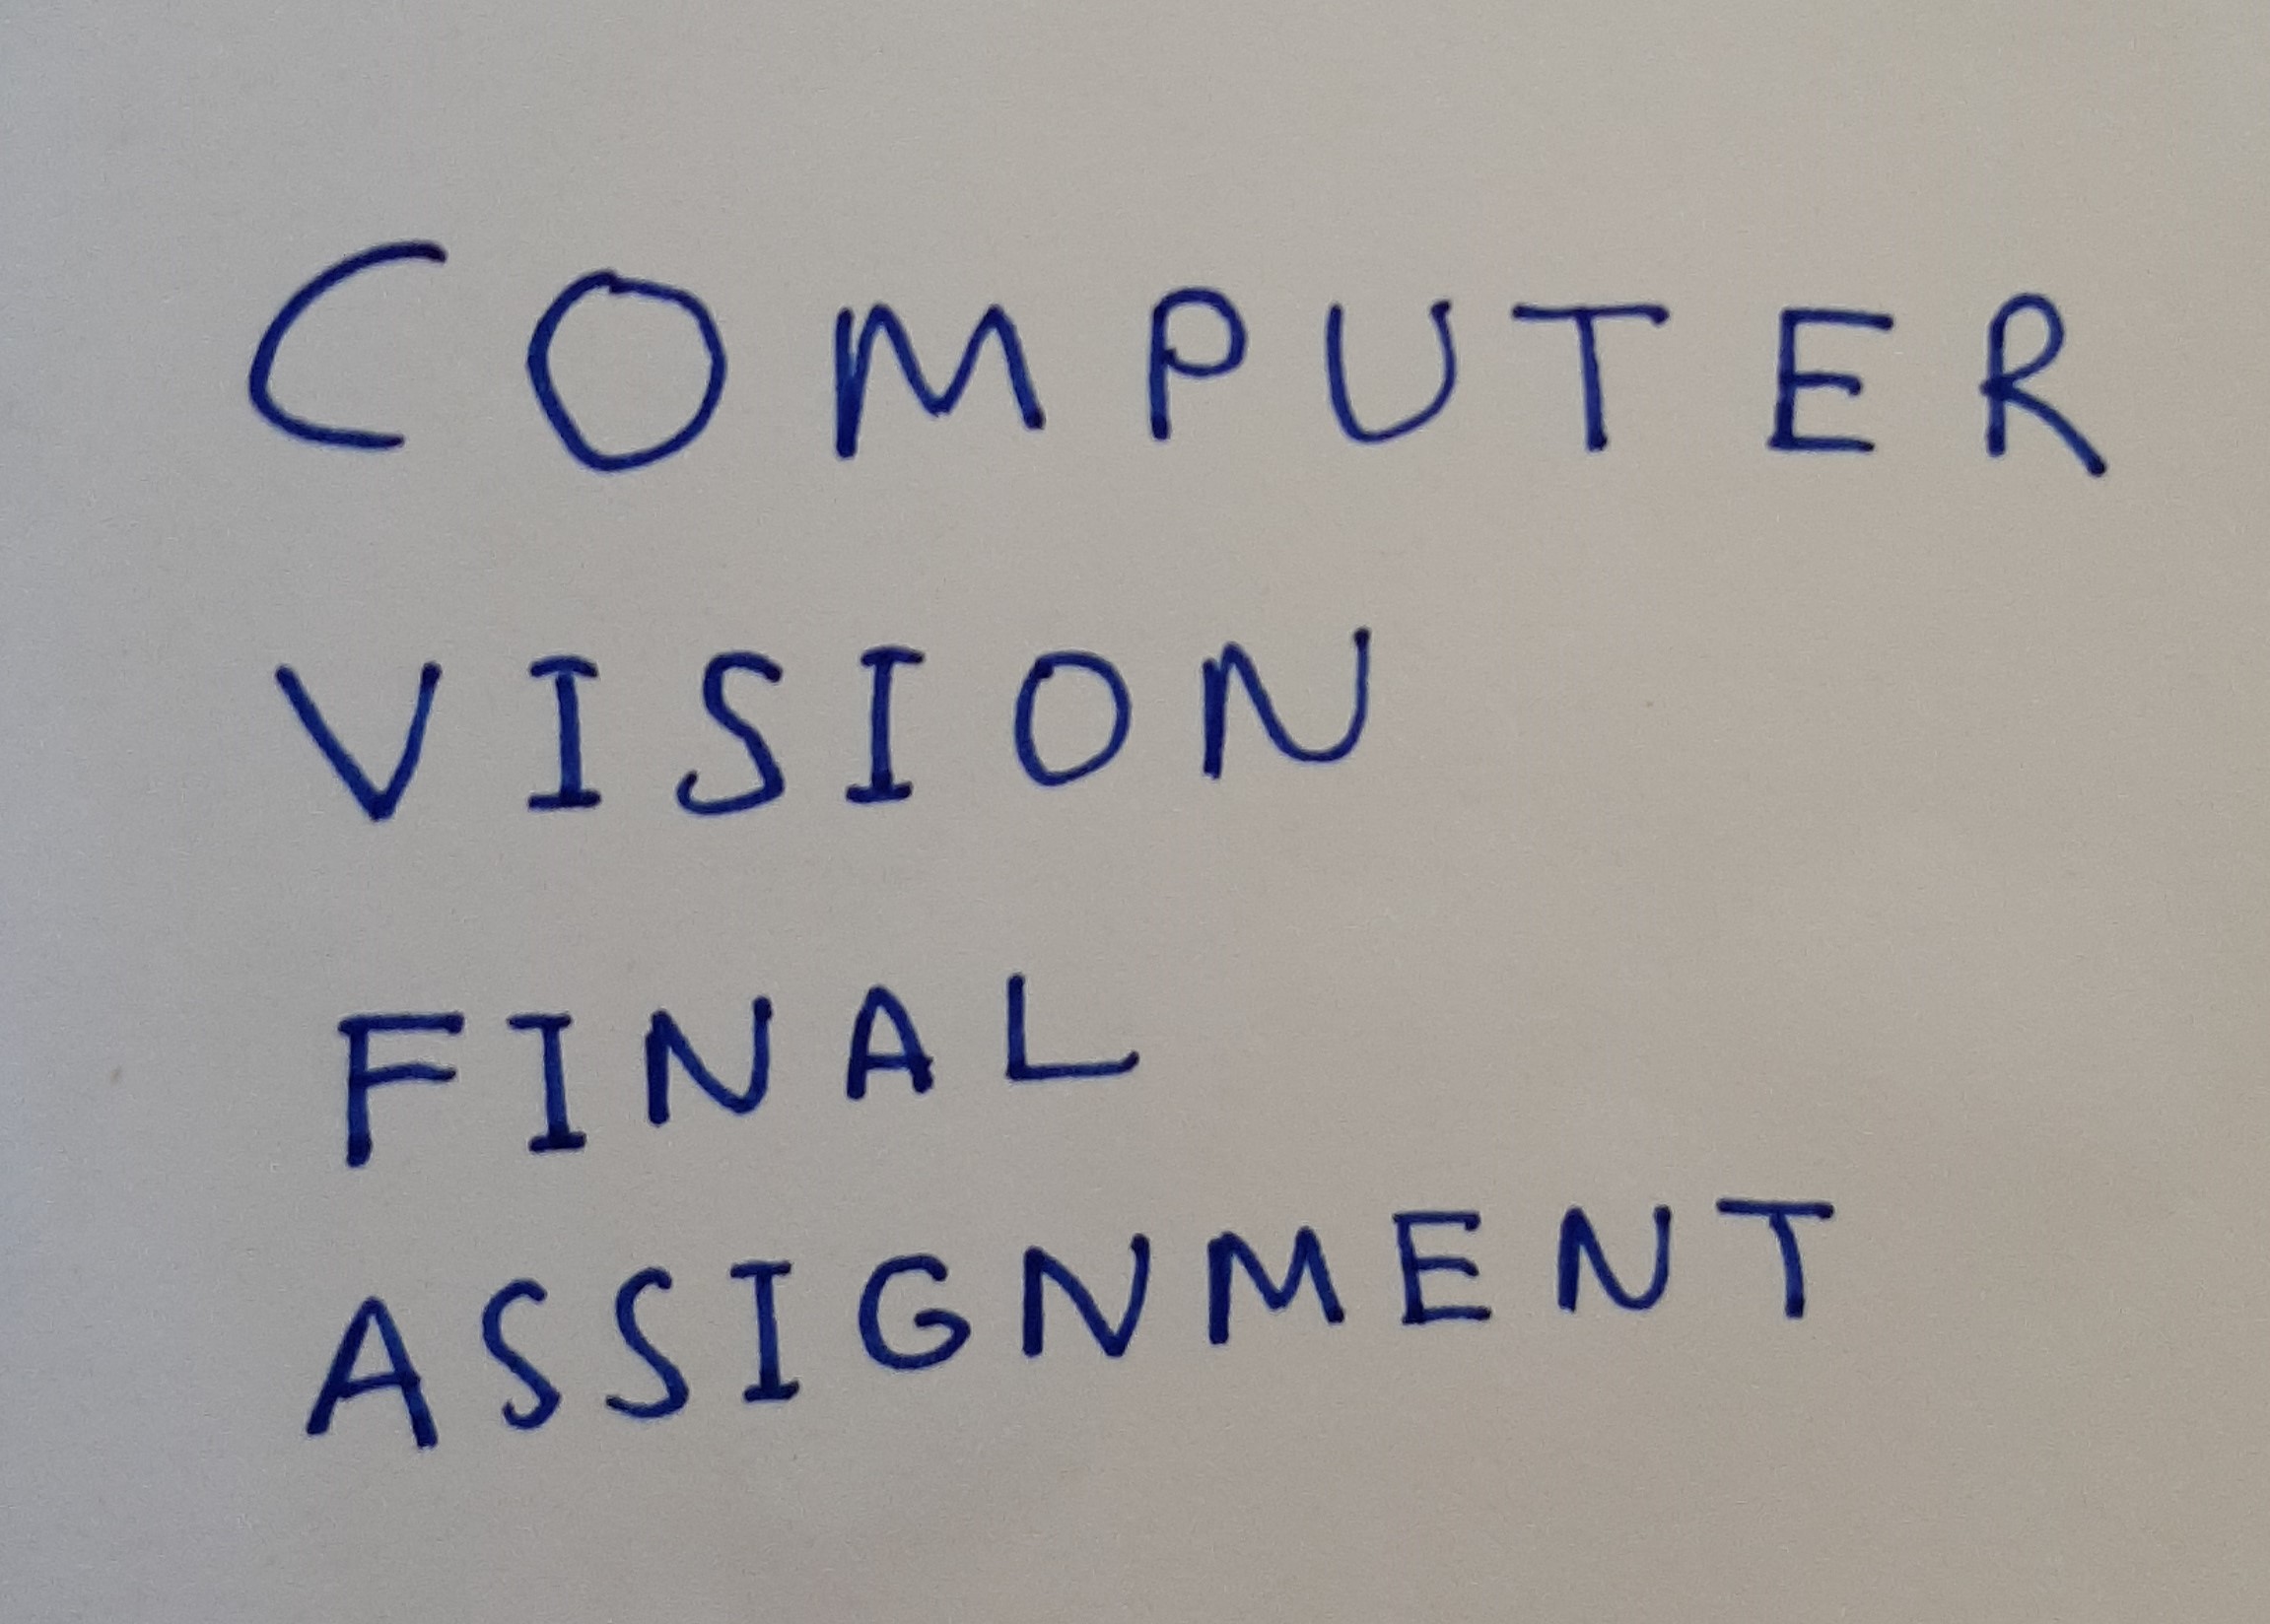 COMPUTER
VISION
FINAL
ASSIGNMENT